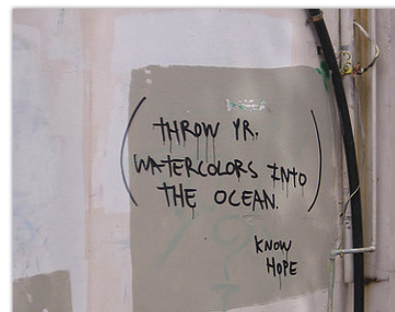 (THROW YR.
WATERCOLORS INTO
THE OCEAN.)
KNOW
HOPE